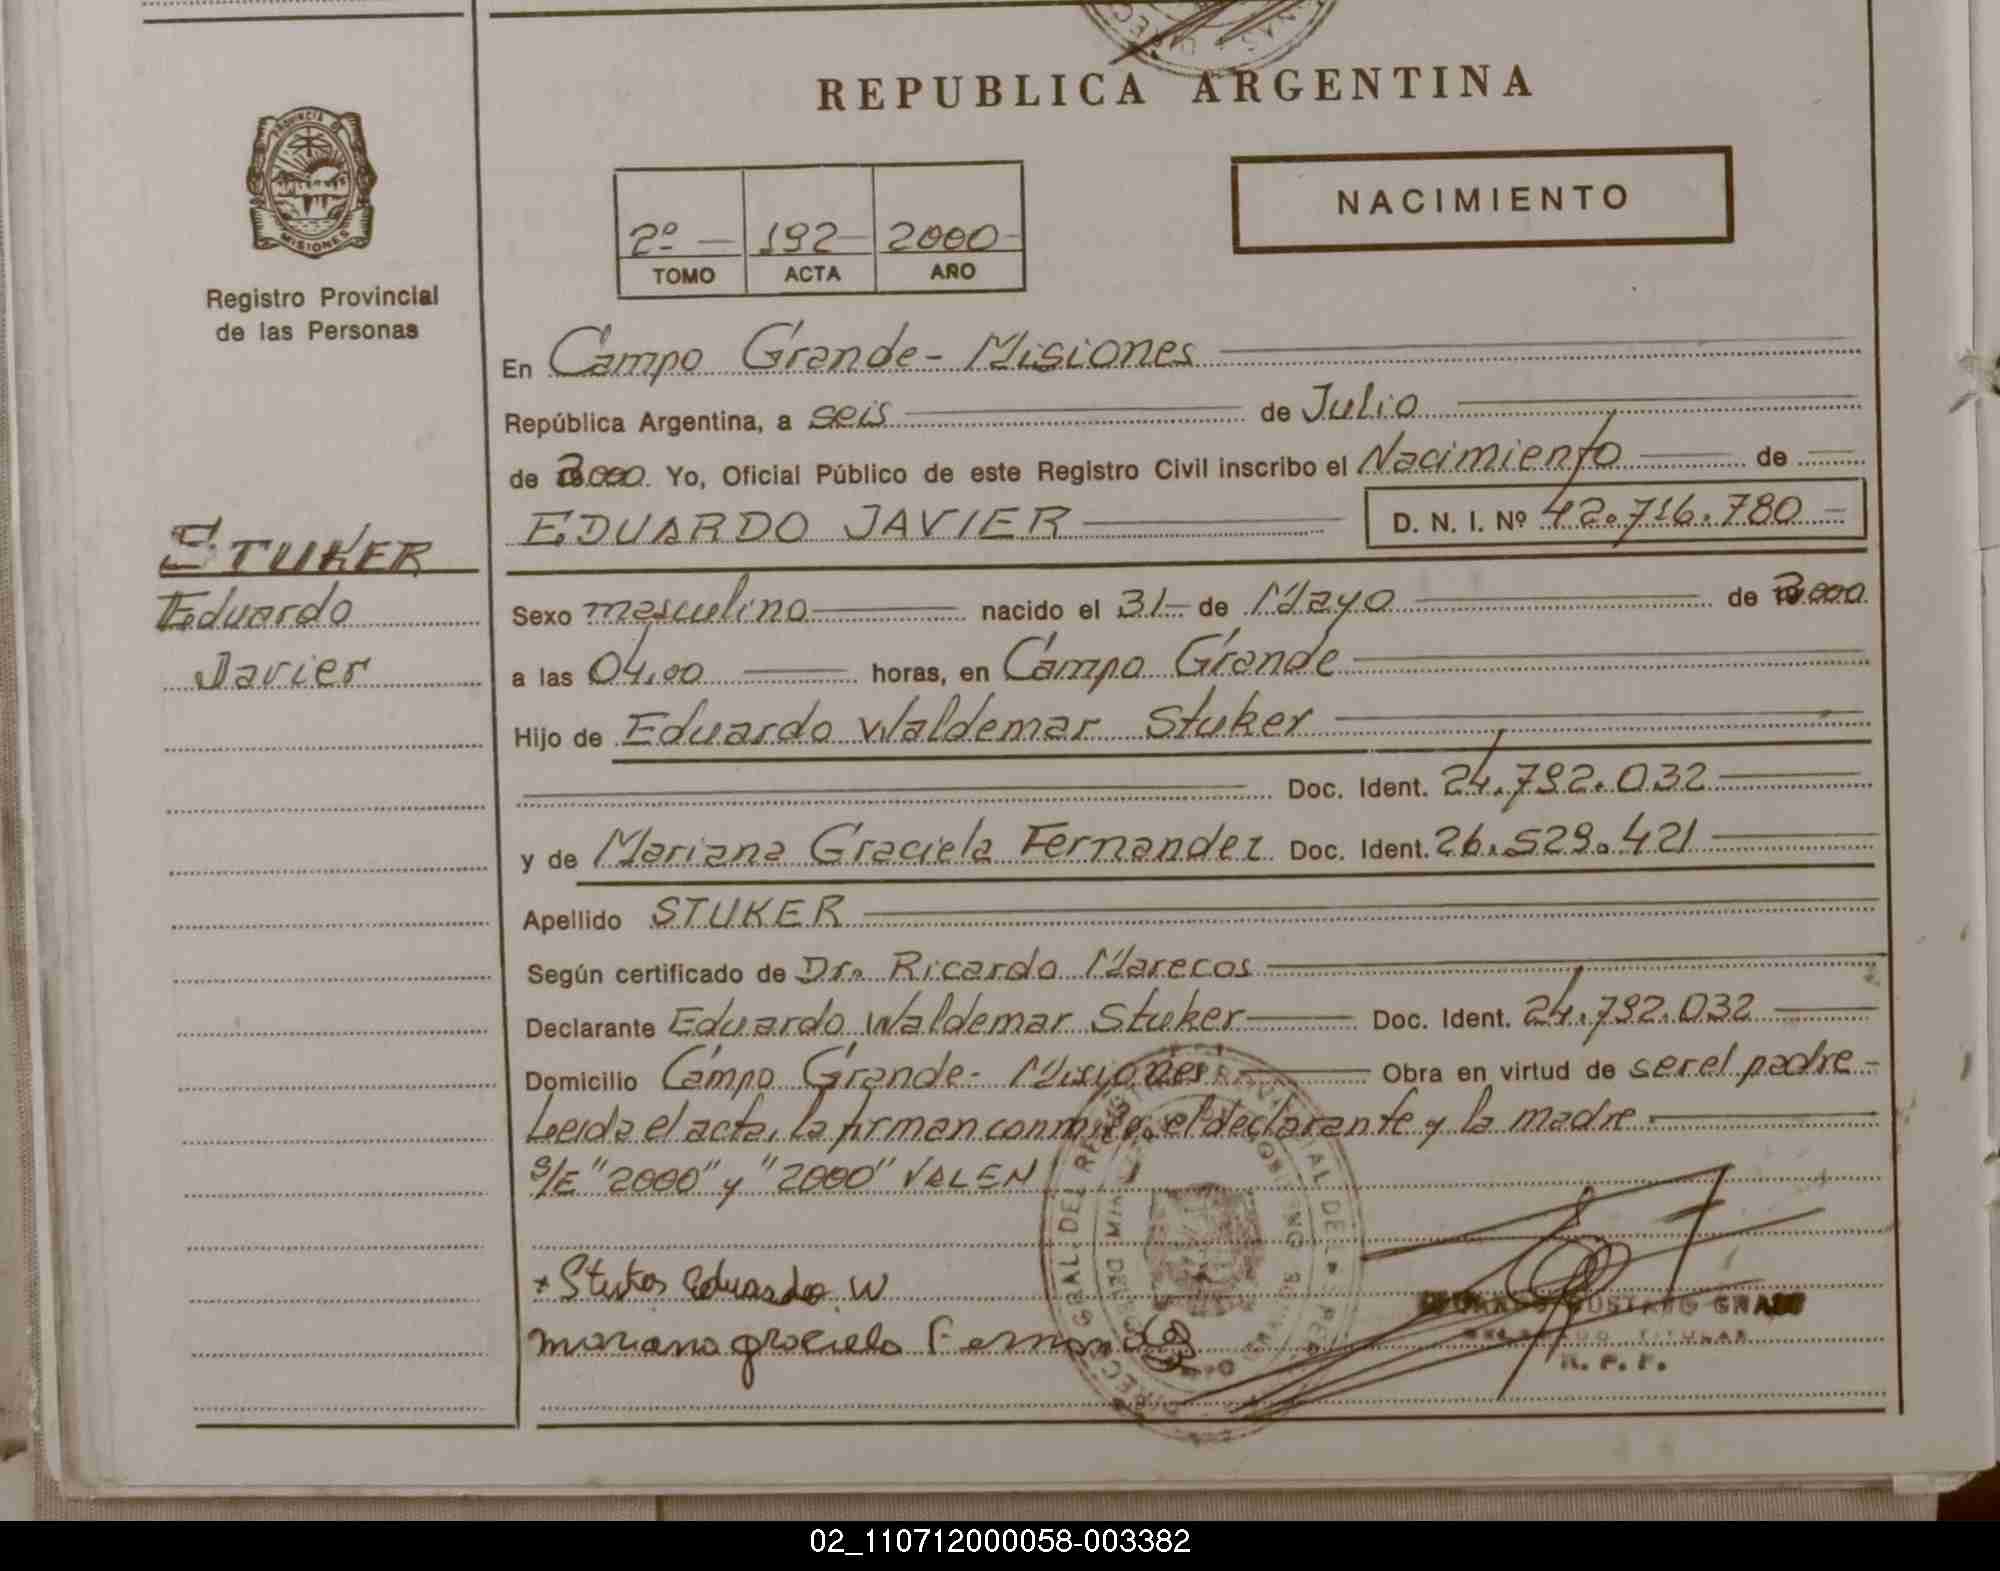 REPUBLICA ARGENTINA
PROVINCIA DE
MISIONES
Registro Provincial
de las Personas
NACIMIENTO
2º 192 2000
TOMO ACTA AÑO
En Campo Grande - Misiones
República Argentina, a seis de Julio
de 2000. Yo, Oficial Público de este Registro Civil inscribo el Nacimiento de
EDUARDO JAVIER D. N. I. Nº 42.716.780
STUKER
Eduardo
Javier
Sexo masculino nacido el 31 de Mayo de 2000
a las 04,00 horas, en Campo Grande
Hijo de Eduardo Waldemar Stuker
Doc. Ident. 24.792.032
y de Mariana Graciela Fernandez Doc. Ident. 26.529.421
Apellido STUKER
Según certificado de Dr. Ricardo Marecos
Declarante Eduardo Waldemar Stuker Doc. Ident. 24.792.032
Domicilio Campo Grande - Misiones Obra en virtud de ser el padre -
Leida el acta, la firman conmigo, el declarante y la madre
S/E "2000" y "2000" VALEN
Eduardo W
mariana graciela Fernandez
GUSTAVO
TITULAR
R. P. P.
02_110712000058-003382